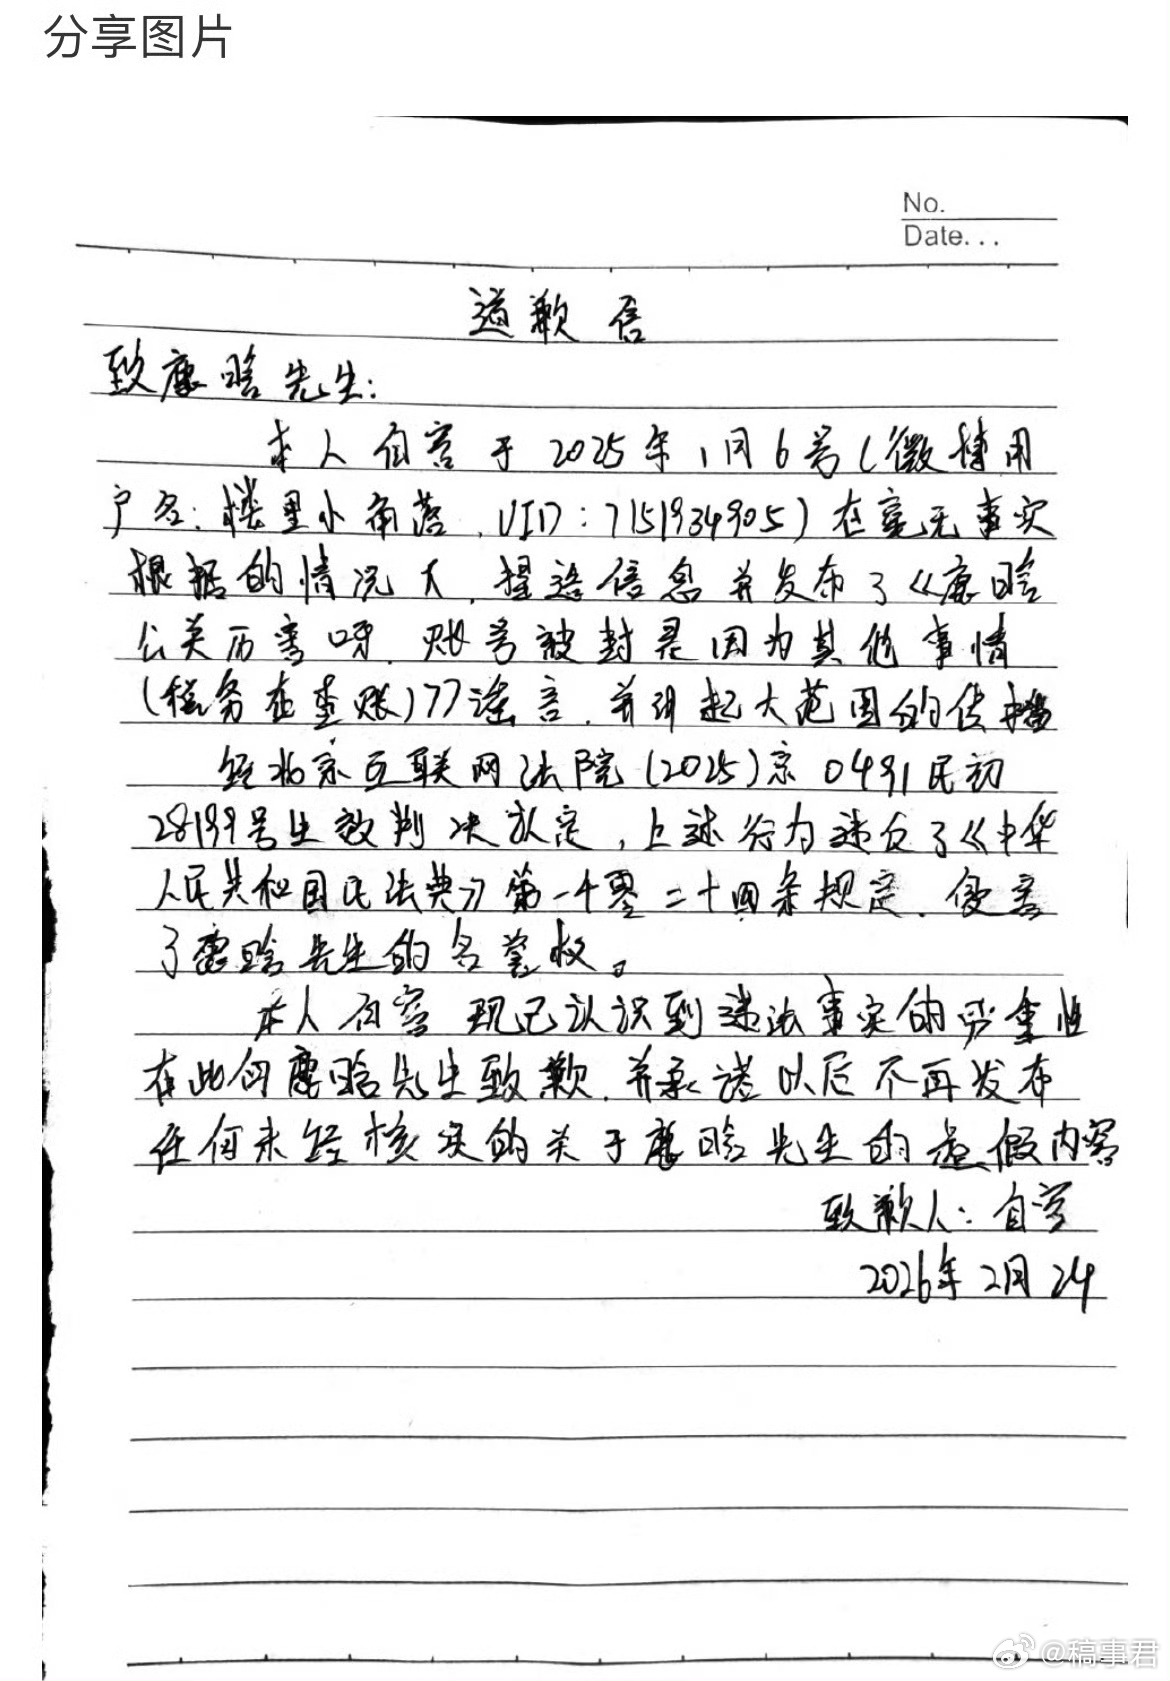 分享图片
No.
Date...
道歉信
致鹿晗先生:
本人白容于2025年1月6号(微博用
户名:楼里小角落,UID:7151934905)在毫无事实
根据的情况下,捏造信息并发布了《鹿晗
公关厉害呀,账号被封是因为其他事情
(税务在查账)77谣言,并引起大范围的传播
经北京互联网法院(2025)京0491民初
28199号生效判决认定,上述行为违反了《中华
人民共和国民法典》第一千零二十四条规定,侵害
了鹿晗先生的名誉权。
本人白容 现已认识到违法事实的严重性
在此向鹿晗先生致歉,并承诺以后不再发布
任何未经核实的关于鹿晗先生的虚假内容
致歉人:白容
2026年2月24
@稿事君